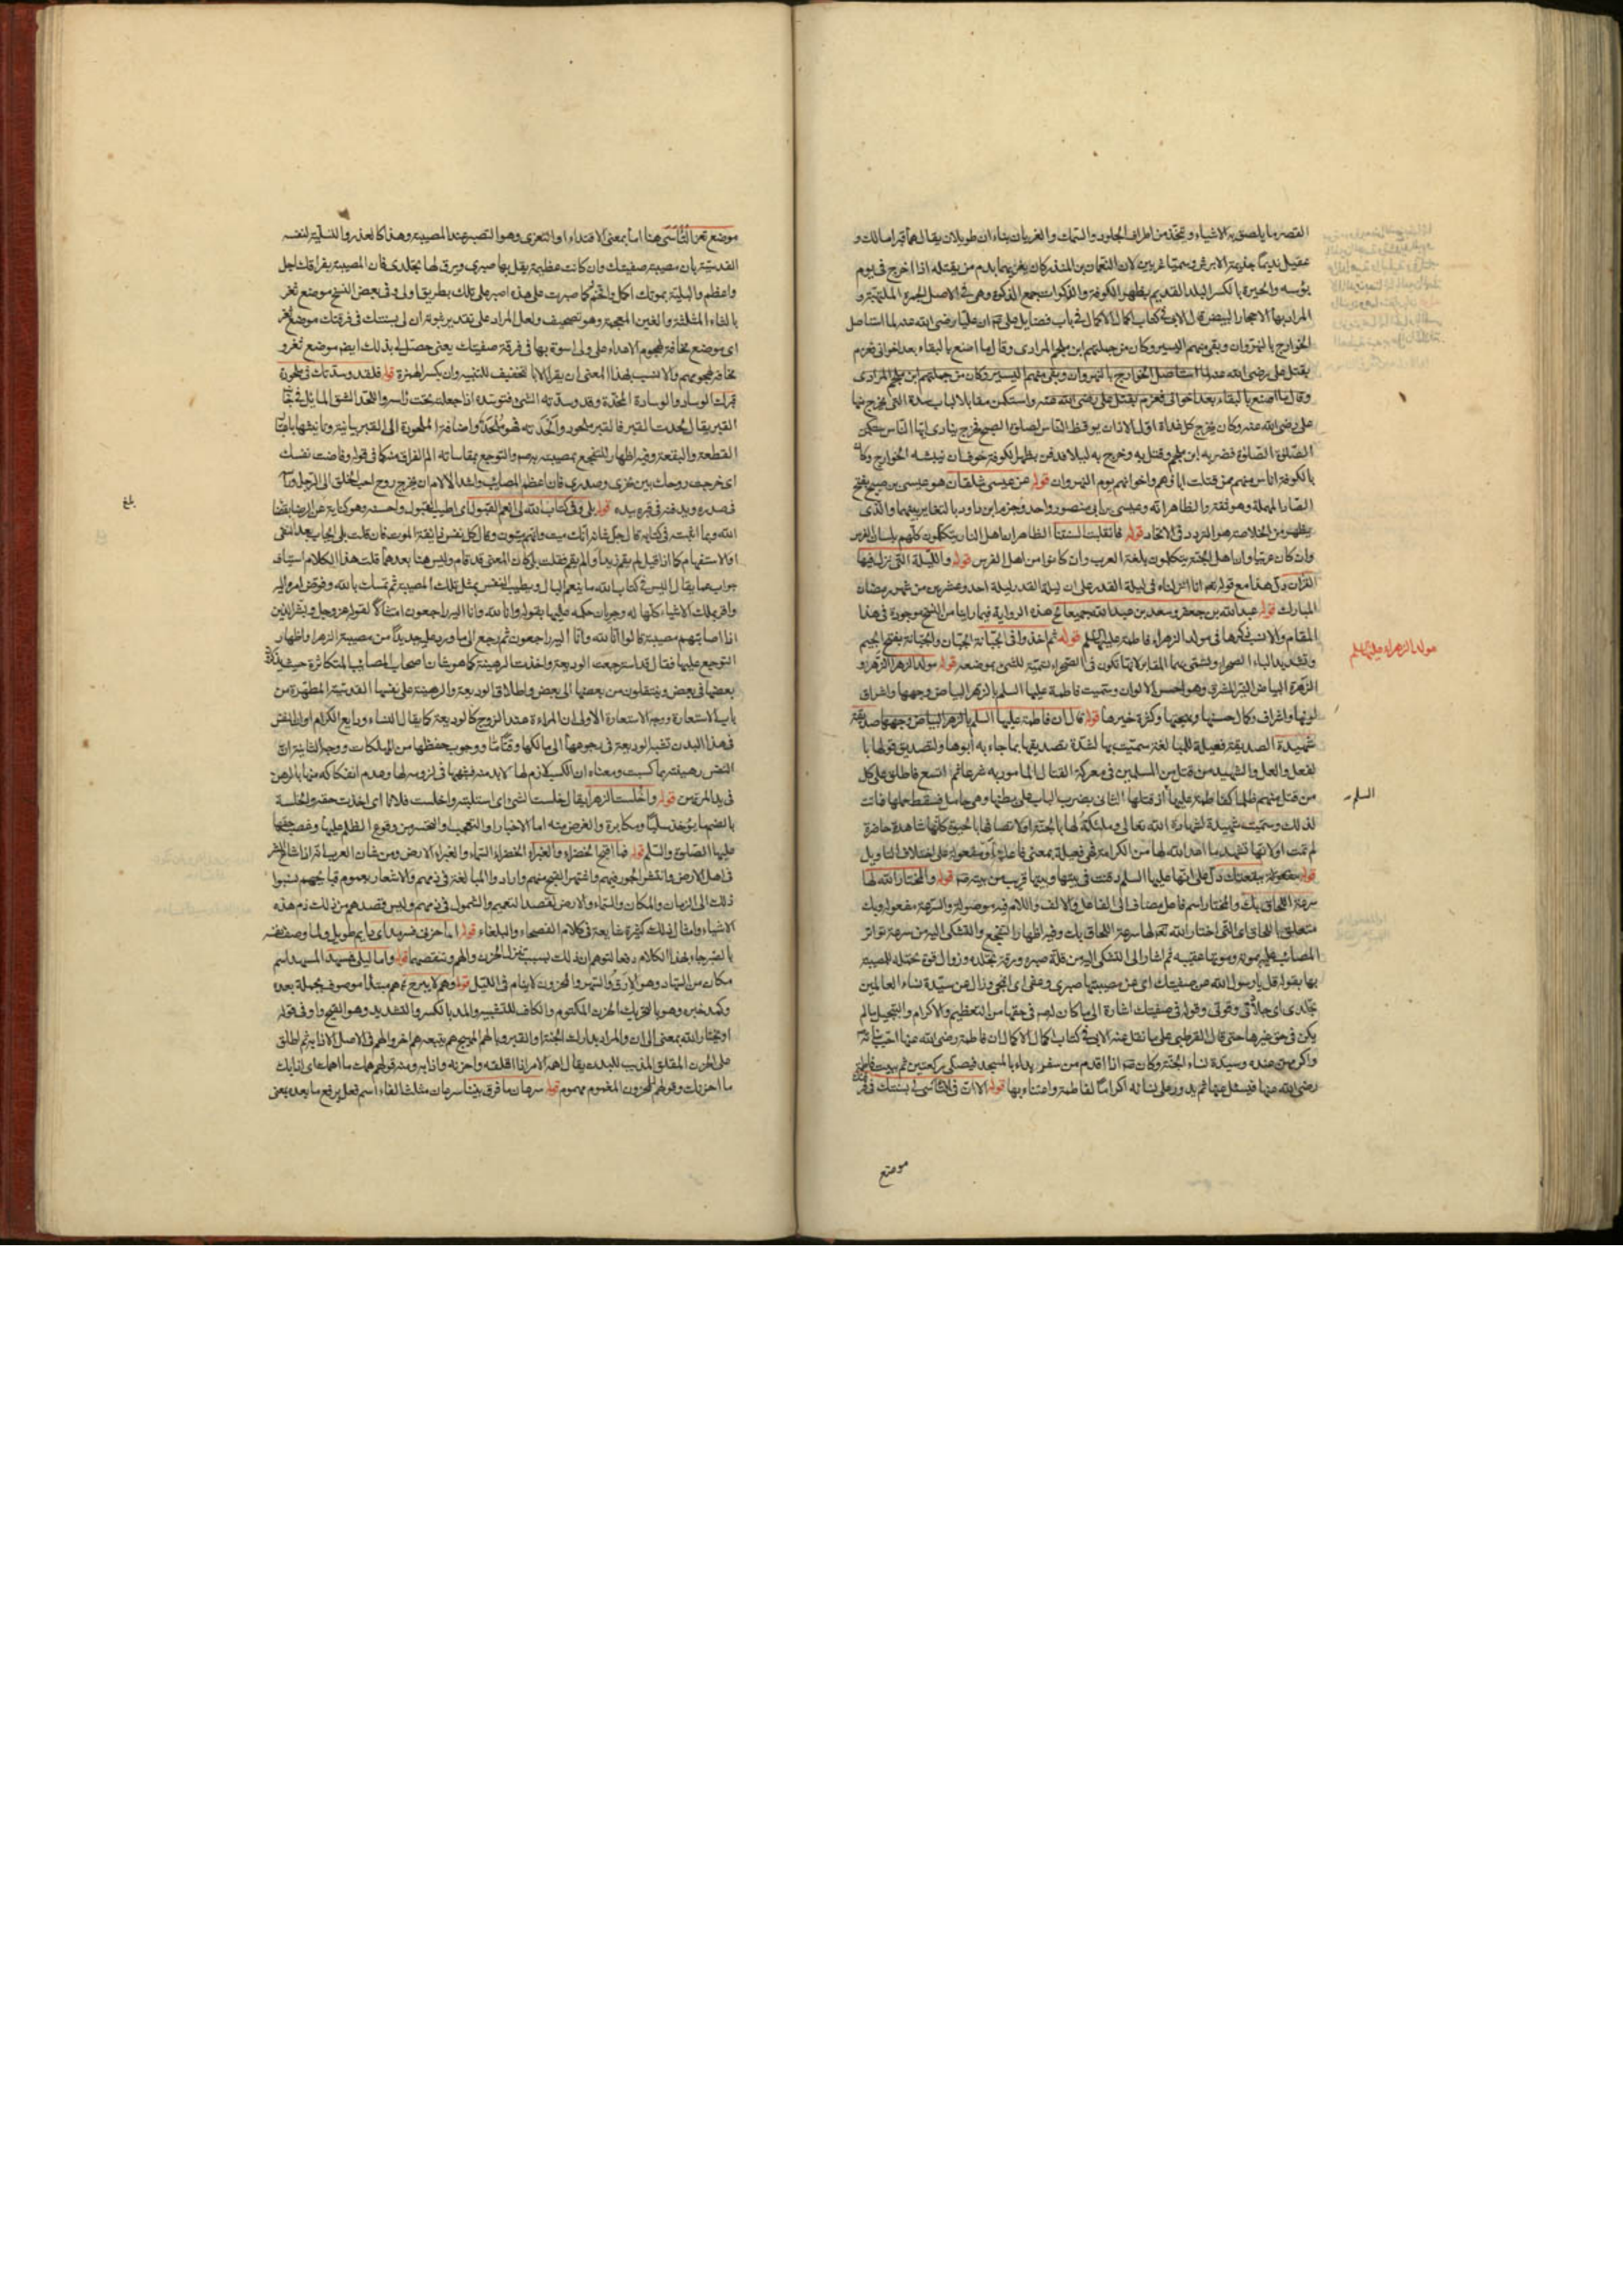 الغصر ما يلصق به الاشياء ويتخذ من اطراف الجلود والسمك والغريان بناءان طويلان يقال هما قبرا مالك و
عقيل نديما جذيمة الابرش وسميا غريين لان النعمان بن المنذر كان يغريهما بدم من يقتله اذا خرج فى يوم
بؤسه والحيرة بالكسر البلد القديم بظهر الكوفة والذكوات جمع الذكوة وهى فى الاصل الجمرة الملتهبة و
المراد بها الاحجار البيض قال الابى فى كتاب اكمال الاكمال فى باب فضايل على ان عليا رضى الله عنه لما استاصل
الخوارج بالنهروان وبقى منهم اليسير وكان من جملتهم ابن ملجم المرادى وقال ما اصنع بالبقاء بعد اخوانى فعزم
بقتل على رضى الله عنه لما استاصل الخوارج بالنهروان وبقى منهم اليسير وكان من جملتهم ابن ملجم المرادى
وقال ما اصنع بالبقاء بعد اخوانى فعزم بقتل على رضى الله عنه واستكن مقابلا لباب سدة التى يخرج منها
على رضى الله عنه وكان يخرج كل غداة اول الاذان يوقظ الناس لصلوة الصبح فخرج ينادى ايها الناس
الصلوة الصلوة فضربه ابن ملجم وقتل به وخرج به ليلا فدفن بظهر الكوفة خوف ان ينبشه الخوارج وكان
بالكوفة اناس منهم ممن قتلت اباؤهم واخوانهم يوم النهروان قوله عن عيسى شلقان هو عيسى بن صبيح بفتح
الصاد المهملة وهو ثقة والظاهر انه وعيسى بن ابى منصور واحد وجزم ابن داود بالتغاير بينهما والذى
يظهر من الخلاصة هو التردد فى الاتحاد قوله فانقلبت لسنتنا الظاهر ان اهل النار يتكلمون كلهم بلسان الفرس
وان كان عربيا وان اهل الجنة يتكلمون بلغة العرب وان كانوا من اهل الفرس قوله والليلة التى نزل فيها
القران دل هذا مع قوله تعالى انا انزلناه فى ليلة القدر على ان ليلة القدر ليلة احد وعشرين من شهر رمضان
المبارك قوله عبدالله بن جعفر وسعد بن عبدالله جميعا هذه الرواية فيما راينا من النسخ موجودة فى هذا
المقام والانسب ذكرها فى مولد الزهراء فاطمة عليها السلم قوله ثم اخذوا فى الجبانة الجبان والجبانة بفتح الجيم
وتشديد الباء الصحراء وتسمى بهما المقابر لانها تكون فى الصحراء تسمية للشئ بموضعه قوله مولد الزهراء الزهراء و
الزهرة البياض النير المشرق وهو احسن الالوان وسميت فاطمة عليها السلم بالزهراء لبياض وجهها واشراق
لونها واشراف وكمال حسنها وبهجتها وكثرة خيرها قوله قال ان فاطمة عليها السلم صديقة
شهيدة الصديقة فعيلة للمبالغة سميت بها لشدة تصديقها بما جاء به ابوها ولتصديق قولها با
لفعل والعمل والشهيد من قتل من المسلمين فى معركة القتال المامور به شرعا ثم اتسع فاطلق على كل
من قتل منهم ظلما كفاطمة عليها اذ قتلها الثانى بضرب الباب على بطنها وهى حامل فسقط حملها فماتت
لذلك وسميت شهيدة لشهادة الله تعالى وملئكته لها بالجنة او لانها حية كانها شاهدة حاضرة
لم تمت او لانها تشهد ما اعد الله لها من الكرامة فهى فعيلة بمعنى فاعلة او مفعولة على اختلاف التاويل
قوله ببقعتك دل على انها عليها السلم دفنت فى بيتها وبيتها قريب من بيته قوله والمختار الله لها
سرعة اللحاق بك والمختار اسم فاعل مضاف الى الفاعل والالف واللام فيه موصولة والسرعة مفعوله وبك
متعلق باللحاق اى التى اختار الله لها سرعة اللحاق بك وفيه اظهار التفجع والتشكى اليه من سرعة تواتر
المصائب عليه بموته وموتها عقيبه ثم اشار الى التشكى اليه من قلة صبره ورقة تجلده وزوال قوة تحمله للمصيبة
بها بقوله قل يا رسول الله عن صفيتك اى عن مصيبتها صبرى وعفى اى انمحى وزال عن سيدة نساء العالمين
تجلدى اى جلادتى وقوتى وقوله فى صفيتك اشارة الى ما كان له فى حقها من التعظيم والاكرام والتبجيل ما لم
يكن فى حق غيرها حتى قال القرطبى على ما نقل عنه الابى فى كتاب اكمال الاكمال ان فاطمة رضى الله عنها احب بناته
واكرمهن عنده وسيدة نساء الجنة وكان اذا قدم من سفر يبدا بالمسجد فيصلى ركعتين ثم بيت فاطمة
رضى الله عنها فيسئل عنها ثم يدور على نسائه اكراما لفاطمة واعتناء بها قوله الا ان فى التاسى لى بسنتك فى
موضع
مولد الزهراء عليها السلم
السلم
موضع تعز التاسى هنا اما بمعنى الاقتداء او التعزى وهو التصبر عند المصيبة وهذا كالعذر والتسلية لنفسه
القدسية بان مصيبة صفيتك وان كانت عظيمة يقل بها صبرى ويرق لها تجلدى فان المصيبة بفراقك اجل
واعظم والبلية بموتك اكمل وافخم كما صبرت على هذه اصبر على تلك بطريق اولى وفى بعض النسخ موضع ثغر
بالثاء المثلثة والغين المعجمة وهو تصحيف ولعل المراد على تقدير ثبوته ان لى بسنتك فى فرقتك موضع ثغر
اى موضع مخافة لهجوم الاعداء على ولى اسوة بها فى فرقة صفيتك يعنى حصل لى بذلك ايضا موضع ثغر و
مخافة لهجومهم والانسب بهذا المعنى ان يقرا الا بالتخفيف للتنبيه وان بكسر الهمزة قوله فلقد وسدتك فى ملحودة
قبرك الوساد والوسادة المخدة وقد وسدته الشئ فتوسده اذا جعله تحت راسه واللحد الشق المائل فى جانب
القبر يقال لحدت القبر فالقبر ملحود والحدته فهو ملحد واضافة الملحودة الى القبر بيانية وتانيثها باعتبار
القطعة والبقعة وفيه اظهار للتفجع بمصيبته والتوجع بمقاساته الم الفراق كما فى قوله وفاضت نفسك
اى خرجت روحك بين نحرى وصدرى فان اعظم المصائب واشد الالام ان يخرج روح احب الخلق الى الرجل وراسه
فى صدره ويدفنه فى قبره بيده قوله بلى وفى كتاب الله لى انعم القبول اى اطيب القبول واحسنه وهو كناية عن الرضا بقضاء
الله وبما اثبت فى كتابه قال جل شانه انك ميت وانهم ميتون وقال كل نفس ذائقة الموت فان قلت بلى ايجاب بعد النفى
او الاستفهام كما اذا قيل لم يقم زيد او الم يقم فقلت بلى كان المعنى قد قام وليس هنا بعدهما قلت هذا الكلام استيناف
جواب عما يقال اليس فى كتاب الله ما ينعم البال ويطيب النفس بمثل تلك المصيبة ثم تمسك بالله وفوض امره اليه
واقر بملك الاشياء كلها له وجريان حكمه عليها بقوله وانا لله وانا اليه راجعون امتثالا لقوله عز وجل وبشر الذين
اذا اصابتهم مصيبة قالوا انا لله وانا اليه راجعون ثم رجع الى ما ورد عليه جديدا من مصيبة الزهراء واظهار
التوجع عليها فقال قد استرجعت الوديعة واخذت الرهينة كما هو شان اصحاب المصائب المتكاثرة حيث
بعضها فى بعض وينتقلون من بعضها الى بعض واطلاق الوديعة والرهينة على نفسها القدسية المطهرة من
باب الاستعارة ووجه الاستعارة الاولى ان المراءة عند الزوج كالوديعة كما يقال النساء ودايع الكرام او ان النفس
فى هذا البدن تشبه الوديعة فى رجوعها الى مالكها وقتا ما ووجوب حفظها من المهلكات ووجه الثانية ان
النفس رهينة بما كسبت ومعناه ان الكسب لازم لها لا بد منه فشبهها فى لزومه لها وعدم انفكاكه عنها بالرهن
فى يد المرتهن قوله واخلست الزهراء يقال خلست الشئ اى استلبته واختلست فلانا اى اخذت حقه والخلسة
بالضم ما يؤخذ سلبا ومكابرة والغرض منه اما الاخبار او التعجب والتحسر من وقوع الظلم عليها وغصب حقها
عليها الصلوة والسلم قوله فما اقبح الخضراء والغبراء الخضراء السماء والغبراء الارض ومن شان العرب انه اذا شاع الشر
فى اهل الارض وانتشر الجور فيهم واشتهر القبح منهم وارادوا المبالغة فى ذمهم والاشعار بعموم قبائحهم نسبوا
ذلك الى الزمان والمكان والسماء والارض لقصد التعميم والشمول فى ذمهم وليس قصدهم من ذلك ذم هذه
الاشياء وامثال ذلك كثيرة شايعة فى كلام الفصحاء والبلغاء قوله اما حزنى فسرمد اى دايم طويل ولما وصف نفسه
بالصبر جاء بهذا الكلام دفعا لتوهم ان ذلك بسبب الحزن والهم ونقصهما قوله واما ليلى فمسهد المسهد اسم
مكان من السهاد وهو الارق والسهر والمحزون لا ينام فى الليل قوله وهم لا يبرح هم مبتدا موصوف بجملة بعده
وكمد خبره وهو بالتحريك الحزن المكتوم والكاف للتشبيه والمد بالكسر والتشديد وهو القيح واو فى قوله
او يختار الله بمعنى الى ان والمراد بدارك الجنة او القبر وبالهم المهيج هم يتبعه هم اخر والهم فى الاصل الاذابة ثم اطلق
على الحزن المقلق المذيب للبدن يقال اهمه الامر اذا اقلقه واحزنه واذابه ومنه قولهم همك ما اهمك اى اذابك
ما احزنك وقولهم للمحزون المغموم مهموم قوله سرعان ما فرق بيننا سرعان مثلث الفاء اسم فعل يرفع ما بعده بمعنى
بلغ